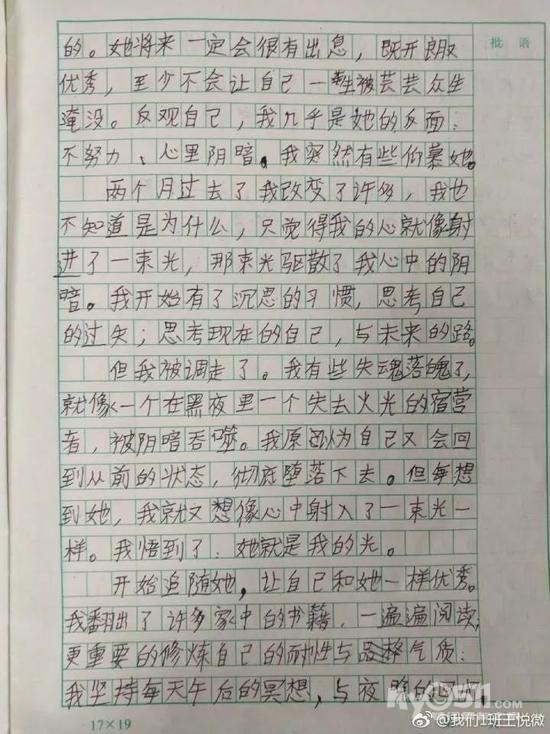 批 语
的。她将来一定会很有出息，既开朗又
优秀，至少不会让自己一生被芸芸众生
淹没。反观自己，我几乎是她的反面：
不努力、心里阴暗。我突然有些仰慕她。
两个月过去了我改变了许多，我也
不知道是为什么，只觉得我的心就像射
进了一束光，那束光驱散了我心中的阴
暗。我开始有了沉思的习惯，思考自己
的过失；思考现在的自己，与未来的路。
但我被调走了。我有些失魂落魄了，
就像一个在黑夜里一个失去火光的宿营
者，被阴暗吞噬。我原以为自己又会回
到从前的状态，彻底堕落下去。但每想
到她，我就又想像心中射入了一束光一
样。我悟到了：她就是我的光。
开始追随她，让自己和她一样优秀。
我翻出了许多家中的书籍，一遍遍阅读，
更重要的修炼自己的耐性与品格气质：
我坚持每天午后的冥想，与夜晚的
17×19
@我们1班王悦微